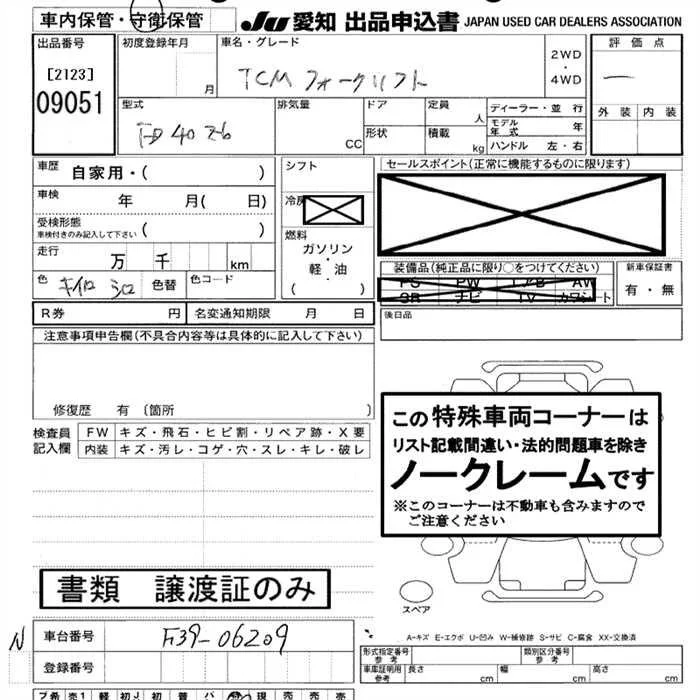 車内保管・守衛保管
JU 愛知 出品申込書 JAPAN USED CAR DEALERS ASSOCIATION
出品番号
[2123]
09051
初度登録年月
月
車名・グレード
TCM フォークリフト
2WD
・
4WD
評価点
—
外装 内装
型式
FD40Z6
排気量
CC
ドア
形状
定員
人
積載
kg
ディーラー・並行
モデル年式
年
ハンドル 左・右
車歴 自家用・( )
車検 年 月( 日)
受検形態
車検付きのみ記入して下さい ( )
走行 万 千 km
色 キイロ シロ 色替 色コード
シフト
冷房
燃料
ガソリン
・
軽・油
( )
セールスポイント(正常に機能するものに限ります)
装備品(純正品に限り○をつけてください)
PS PW エアB AW
SR ナビ TV カワシート
新車保証書
有・無
後日品
R券 円 名変通知期限 月 日
注意事項申告欄(不具合内容等は具体的に記入して下さい)
修復歴 有 〔箇所 〕
検査員
記入欄
FW キズ・飛石・ヒビ割・リペア跡・X要
内装 キズ・汚レ・コゲ・穴・スレ・キレ・破レ
この特殊車両コーナーは
リスト記載間違い・法的問題車を除き
ノークレームです
※このコーナーは不動車も含みますので
ご注意ください
書類 譲渡証のみ
スペア
A-キズ E-エクボ U-凹み W-補修跡 S-サビ C-腐食 XX-交換済
N
車台番号 F39-06209
登録番号
形式指定番号
参考
類別区分番号
参考
車庫証明用
参考
長さ cm 幅 cm 高さ cm